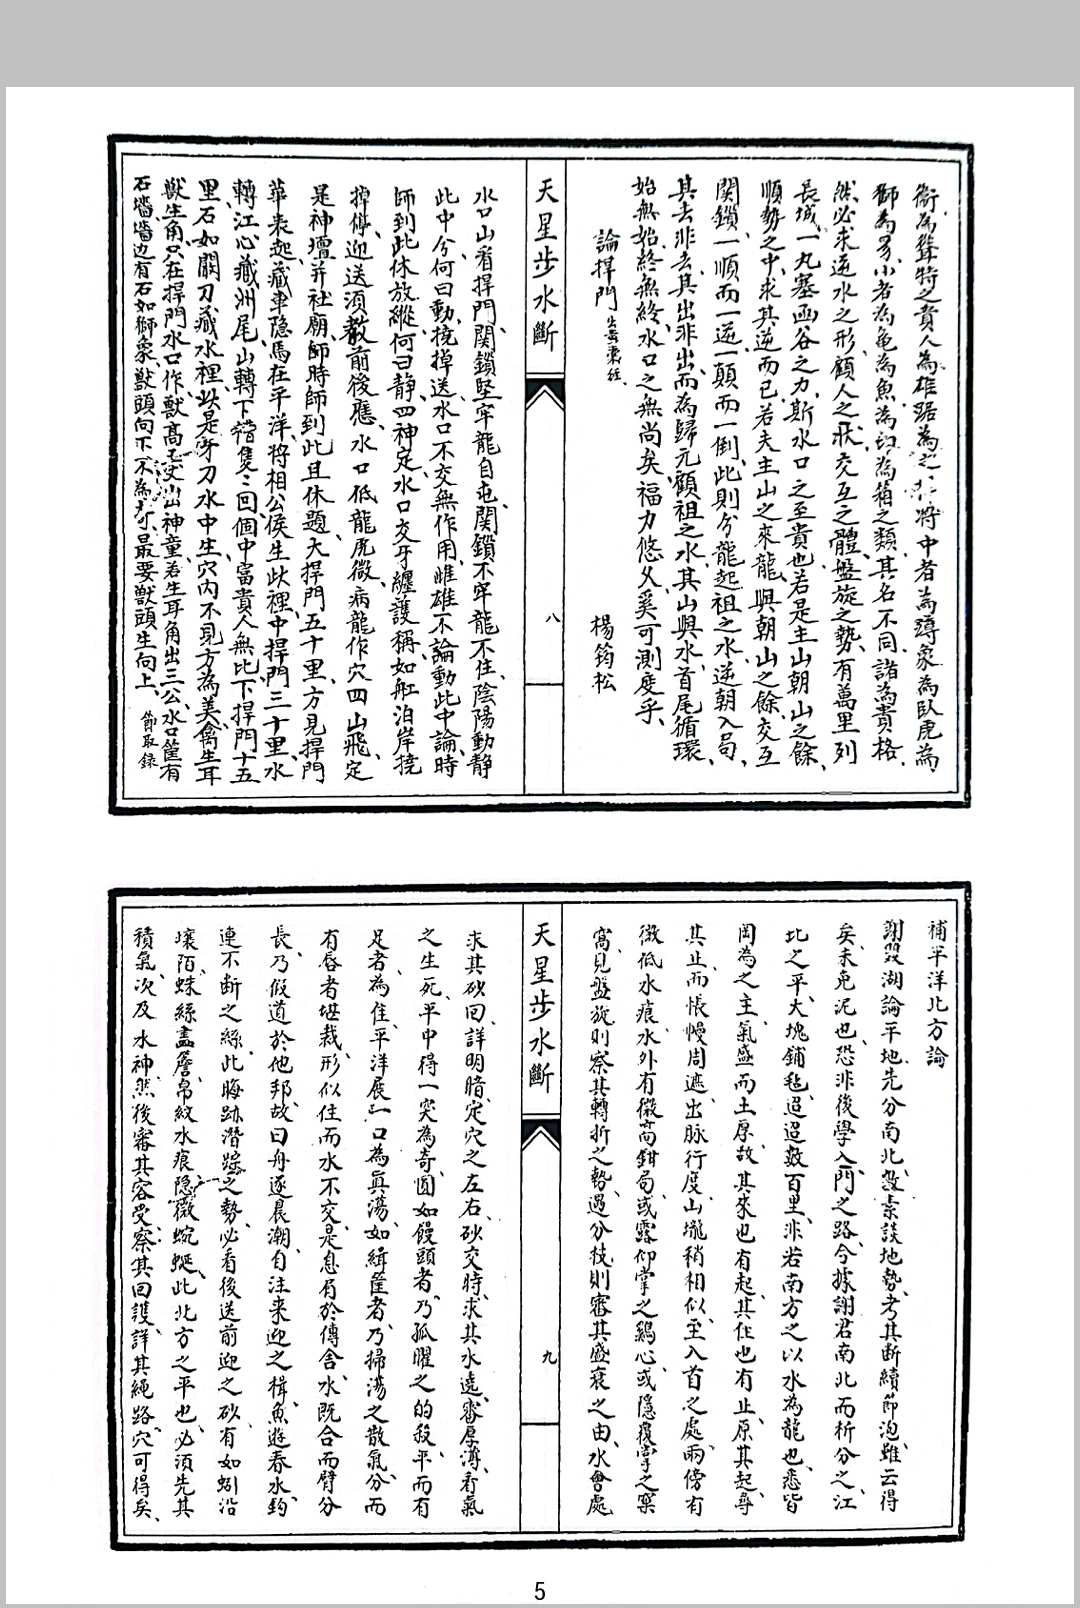 衙為聳特之貴人為雄踞為之將中者為蹲象為臥虎為
獅為豸小者為龜為魚為印為箱之類其名不同諸為貴格
然必求逆水之形顧人之狀交互之體盤旋之勢有萬里列
長城一丸塞函谷之力斯水口之至貴也若是主山朝山之餘
順勢之中求其逆而已若夫主山之來龍與朝山之餘交互
関鎖一順而一逆一顛而一倒此則兮龍起祖之水逆朝入局
其去非去其出非出而為歸元顧祖之水其山與水首尾循環
始無始終無終水口之無尚矣福力悠久奚可測度乎
論捍門
楊筠松
天星步水斷
八
水口山看捍門関鎖堅牢龍自屯関鎖不牢龍不住陰陽動靜
此中兮何曰動撓掉送水口不交無作用雌雄不論動此中論時
師到此休放縱何曰靜四神定水口交牙纏護稱如舡泊岸撓
掉停迎送須教前後應水口低龍虎微病龍作穴四山飛定
是神壇并社廟師時師到此且休題大捍門五十里方見捍門
華表起藏車隐馬在平洋將相公侯生此裡中捍門三十里水
轉江心藏洲尾山轉下稽隻隻回個中富貴人無比下捍門十五
里石如關刀藏水裡此是牙刀水中生穴內不見方為美禽生耳
獸生角只在捍門水口作獸高更出神童若生耳角出三公水口筐有
石墻墻边有石如獅象獸頭向下不為才最要獸頭生向上 節取錄
補平洋北方論
謝雙湖論平地先分南北發素談地勢考其断續節泡雖云得
矣未免泥也恐非後學入門之路今據謝君南北而析分之江
北之平大塊鋪毡迢迢数百里非若南方之以水為龍也悉皆
岡為之主氣盛而土厚故其來也有起其住也有止原其起尋
其止而悵幔周遮出脉行度山壠稍相似至入首之處兩傍有
微低水痕水外有微高鉗局或露仰掌之鷄心或隱覆掌之窠
窩見盤旋則察其轉折之勢過分枝則審其盛衰之由水會處
天星步水斷
九
求其砂回詳明暗定穴之左右砂交時求其水遠審厚薄看氣
之生死平中得一突為奇圓如饅頭者乃孤曜之的殺平而有
足者為佳平洋展一口為眞蕩如緝筐者乃掃蕩之散氣分而
有唇者堪裁形似住而水不交是息肩於傳舍水既合而臂分
長乃假道於他邦故曰舟逐晨潮自注来迎之楫魚遊春水鈎
連不断之絲此晦跡潛踪之勢必看後送前迎之砂有如蚓沿
壤陌蛛絲盖簷帛紋水痕隐微蜿蜒此北方之平也必須先其
積氣次及水神然後審其容受察其回護詳其純路穴可得矣
5